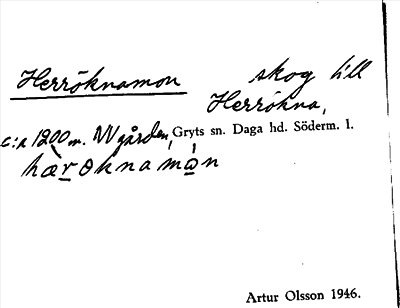 Herröknamon skog till
Herrökna,
c:a 1200 m. NV gården, Gryts sn. Daga hd. Söderm. l.
hæ̀røknamó̲n
Artur Olsson 1946.